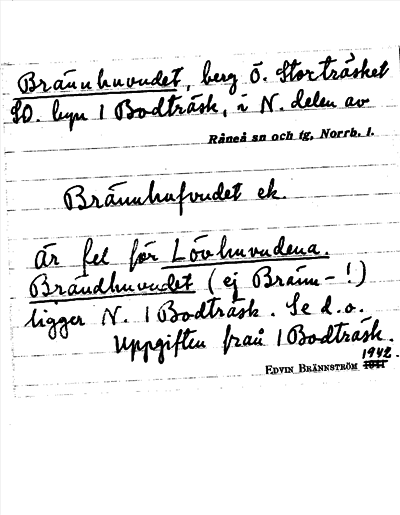 Brännhuvudet, berg ö. Storträsket
SO. byn 1 Bodträsk, i N. delen av
Råneå sn och tg, Norrb. l.
Brännhufvudet ek.
Är fel för Lövhuvudena.
Brändhuvudet (ej Bränn-!)
ligger N. 1 Bodträsk. Se d.o.
Uppgiften från 1 Bodträsk.
1942.
EDVIN BRÄNNSTRÖM 1941